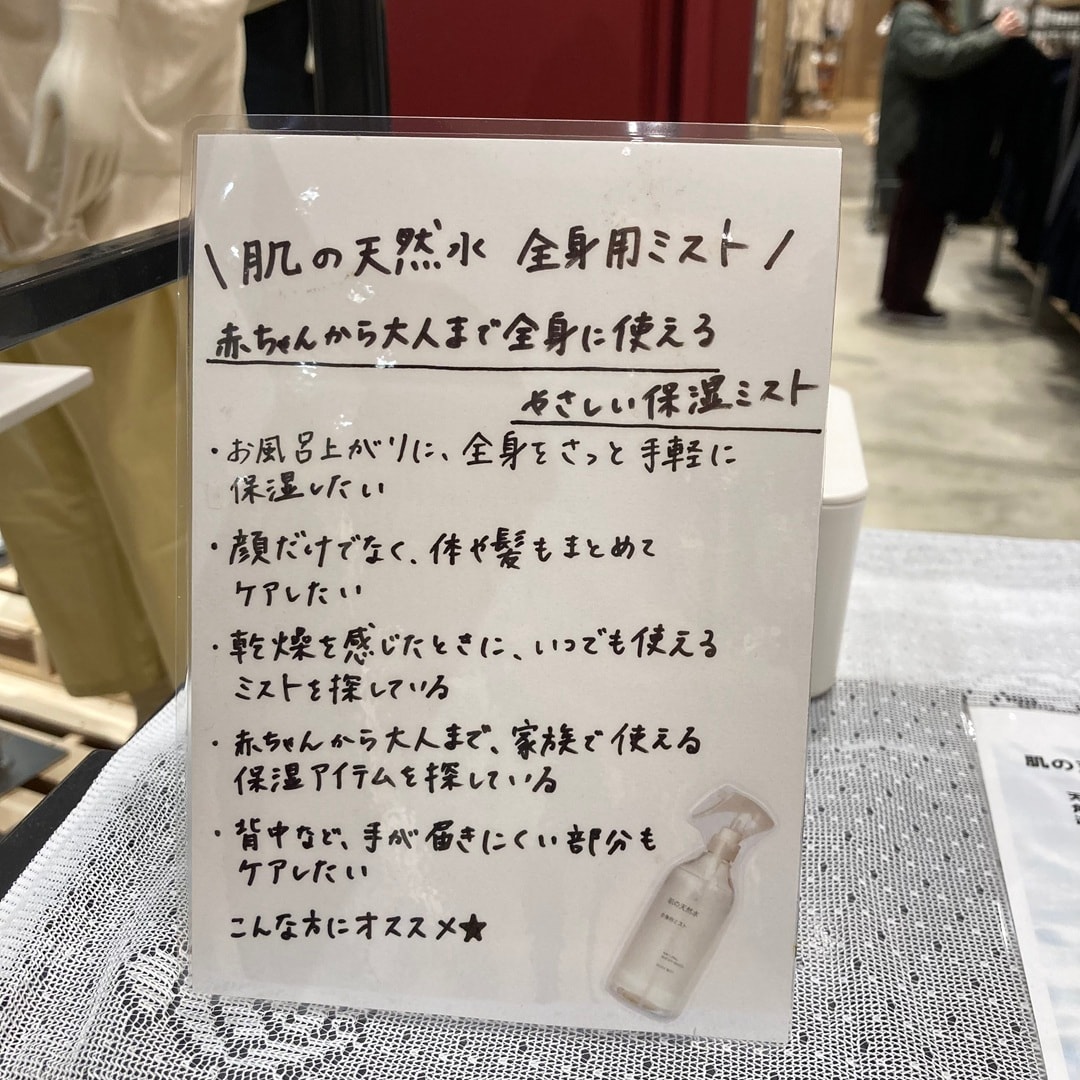 \ 肌の天然水 全身用ミスト /
赤ちゃんから大人まで全身に使える
やさしい保湿ミスト
・お風呂上がりに、全身をさっと手軽に
保湿したい
・顔だけでなく、体や髪もまとめて
ケアしたい
・乾燥を感じたときに、いつでも使える
ミストを探している
・赤ちゃんから大人まで、家族で使える
保湿アイテムを探している
・背中など、手が届きにくい部分も
ケアしたい
こんな方にオススメ★
肌の天然水
全身用ミスト
肌の